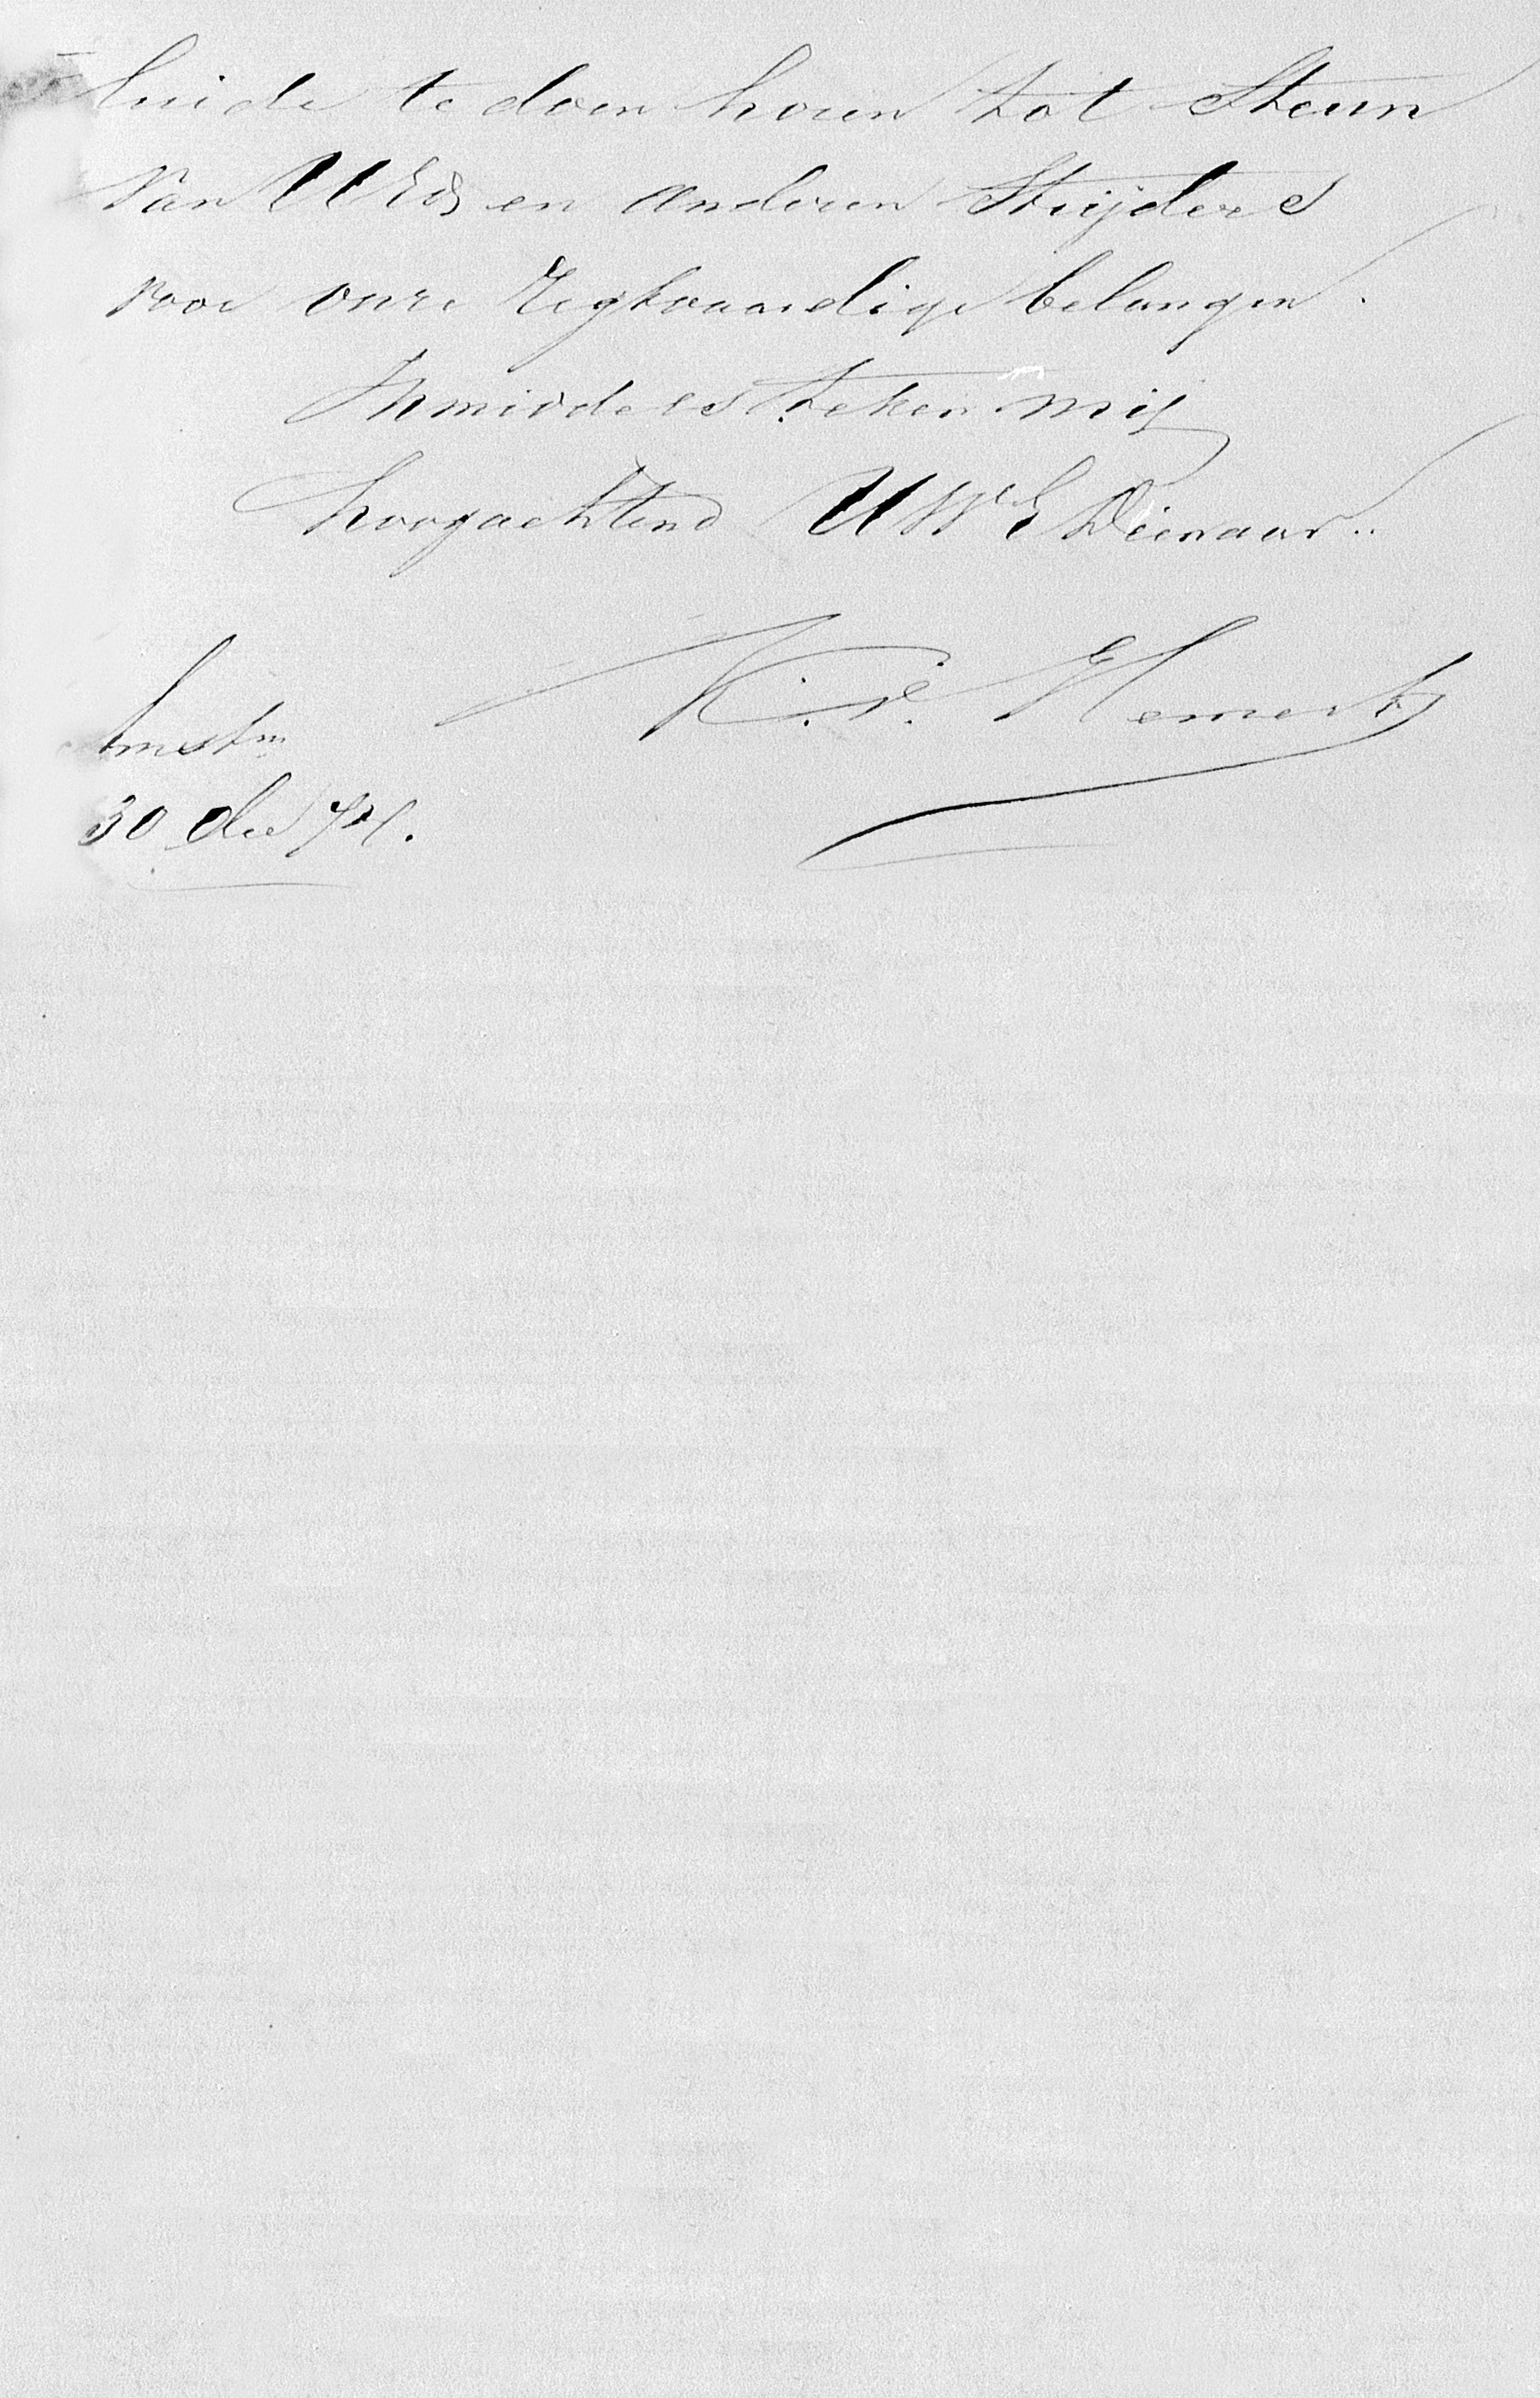 luide te doen horen tot Steun
van UEd en anderen Strijders
voor onze Regtvaardige belangen.
Inmiddels teken mij
hoogachtend UWE Dienaar..
K. v. Hemert
Amstm
30 dec